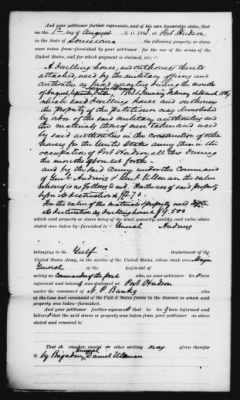 And your petitioner further represents, and of his own knowledge states, that
on the 1st day of August A. D. 186 , at Port Hudson
in the State of Louisiana the following property or stores
were taken from or furnished by your petitioner for the use of the army of the
United States, and for which payment is claimed, viz:
A dwelling house and outhouses thereto
attached, used by the military officers and
authorities as
which said dwelling house and outhouses
the property of the Petitioner was demolished
by order of the said military authorities and
the materials thereof were taken and used
by said authorities in the construction of other
houses for the United States army then in the
occupation of Port Hudson, all this during
the months above set forth
and by the said Army under the Command
of Gen'l Andrews & Gen'l Ullman, the value
whereof is as follows to wit: For the use of said property
before its destruction
For the value of the materials of said property
its destruction as dwelling house $
which said property or stores being of the kind, quantity, quality, and value above
stated was taken by or furnished to General Andrews
belonging to the Gulf Department of the
United States Army, in the service of the United States, whose rank was Major
General of the Regiment of
acting as Commander of the post who, as your petitioner is
informed and believes, was stationed at Port Hudson
under the command of N. P. Banks who
at the time had command of the United States forces in the District in which said
property was taken or furnished.
And your petitioner further represents that is informed and
believes that the said stores or property was taken from your petitioner as above
stated and removed to
That a voucher, receipt or other writing was given therefor
by Brigadier General Daniel Ullman